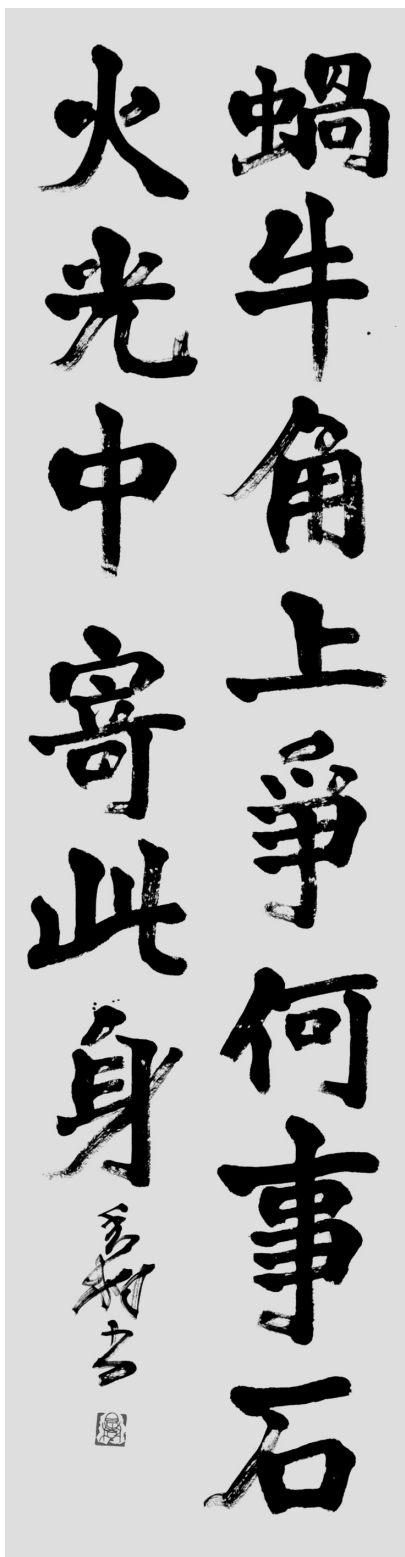 蝸牛角上爭何事石
火光中寄此身